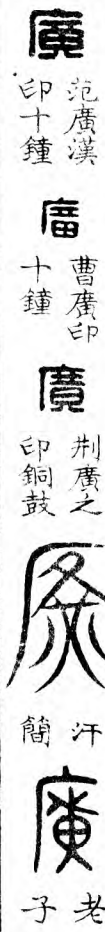 廣
范廣漢
印十鐘
廣
曹廣印
十鐘
廣
荆廣之
印銅鼓
汗
簡
廣
老
子